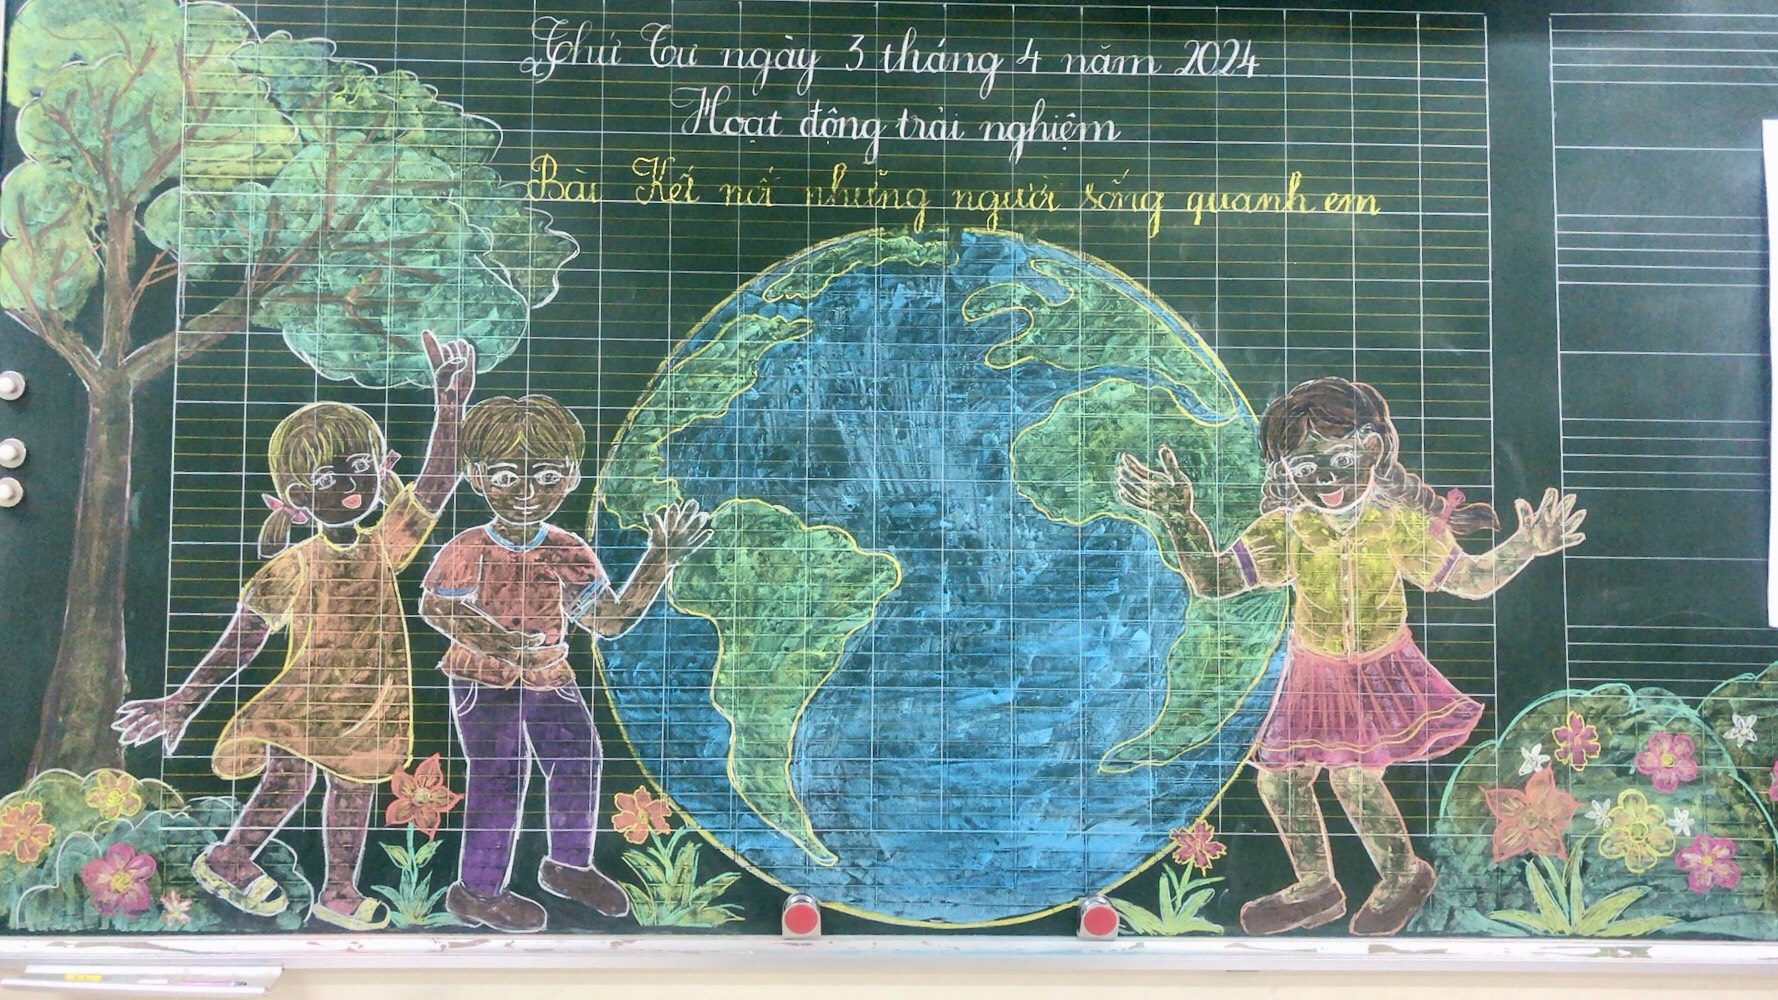 Thứ Tư ngày 3 tháng 4 năm 2024
Hoạt động trải nghiệm
Bài Kết nối những người sống quanh em